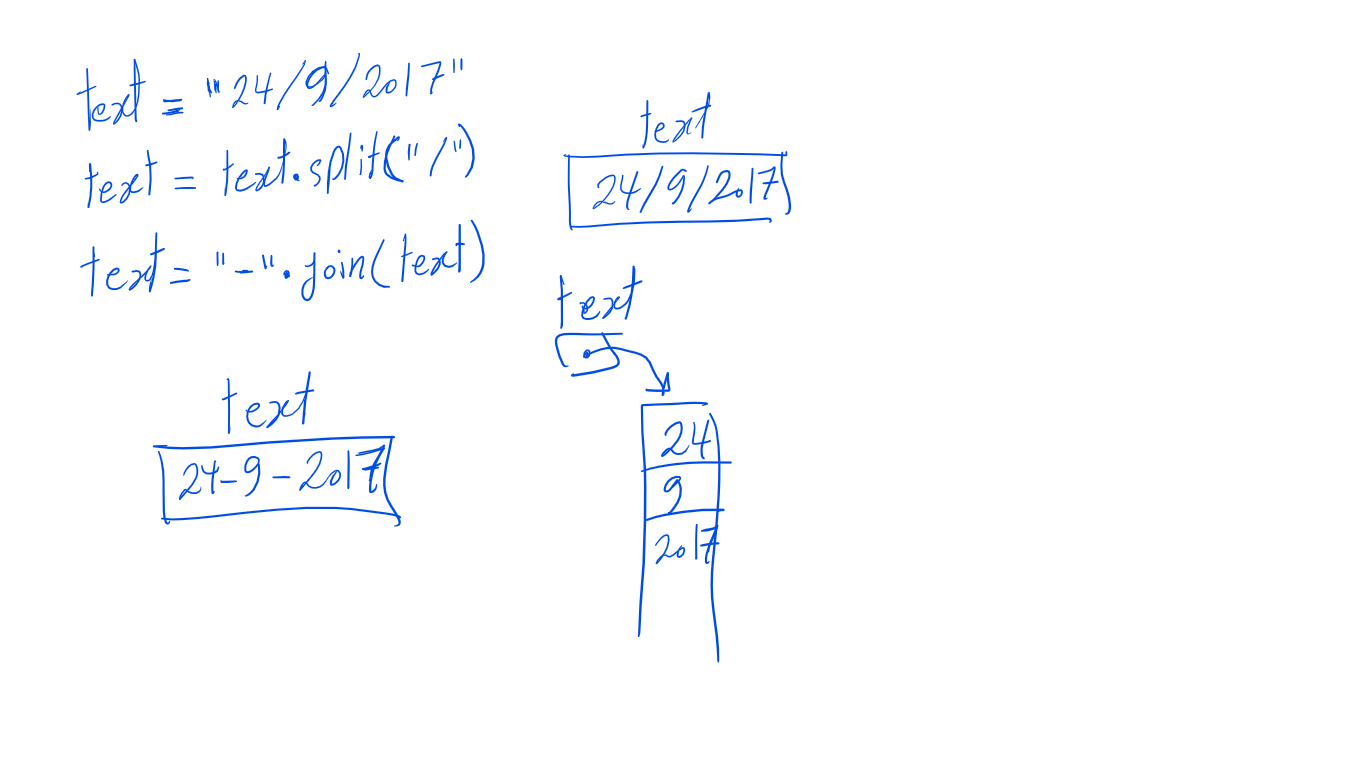 text = "24/9/2017"
text = text.split("/")
text = "-".join(text)
text
24/9/2017
text
24
9
2017
text
24-9-2017